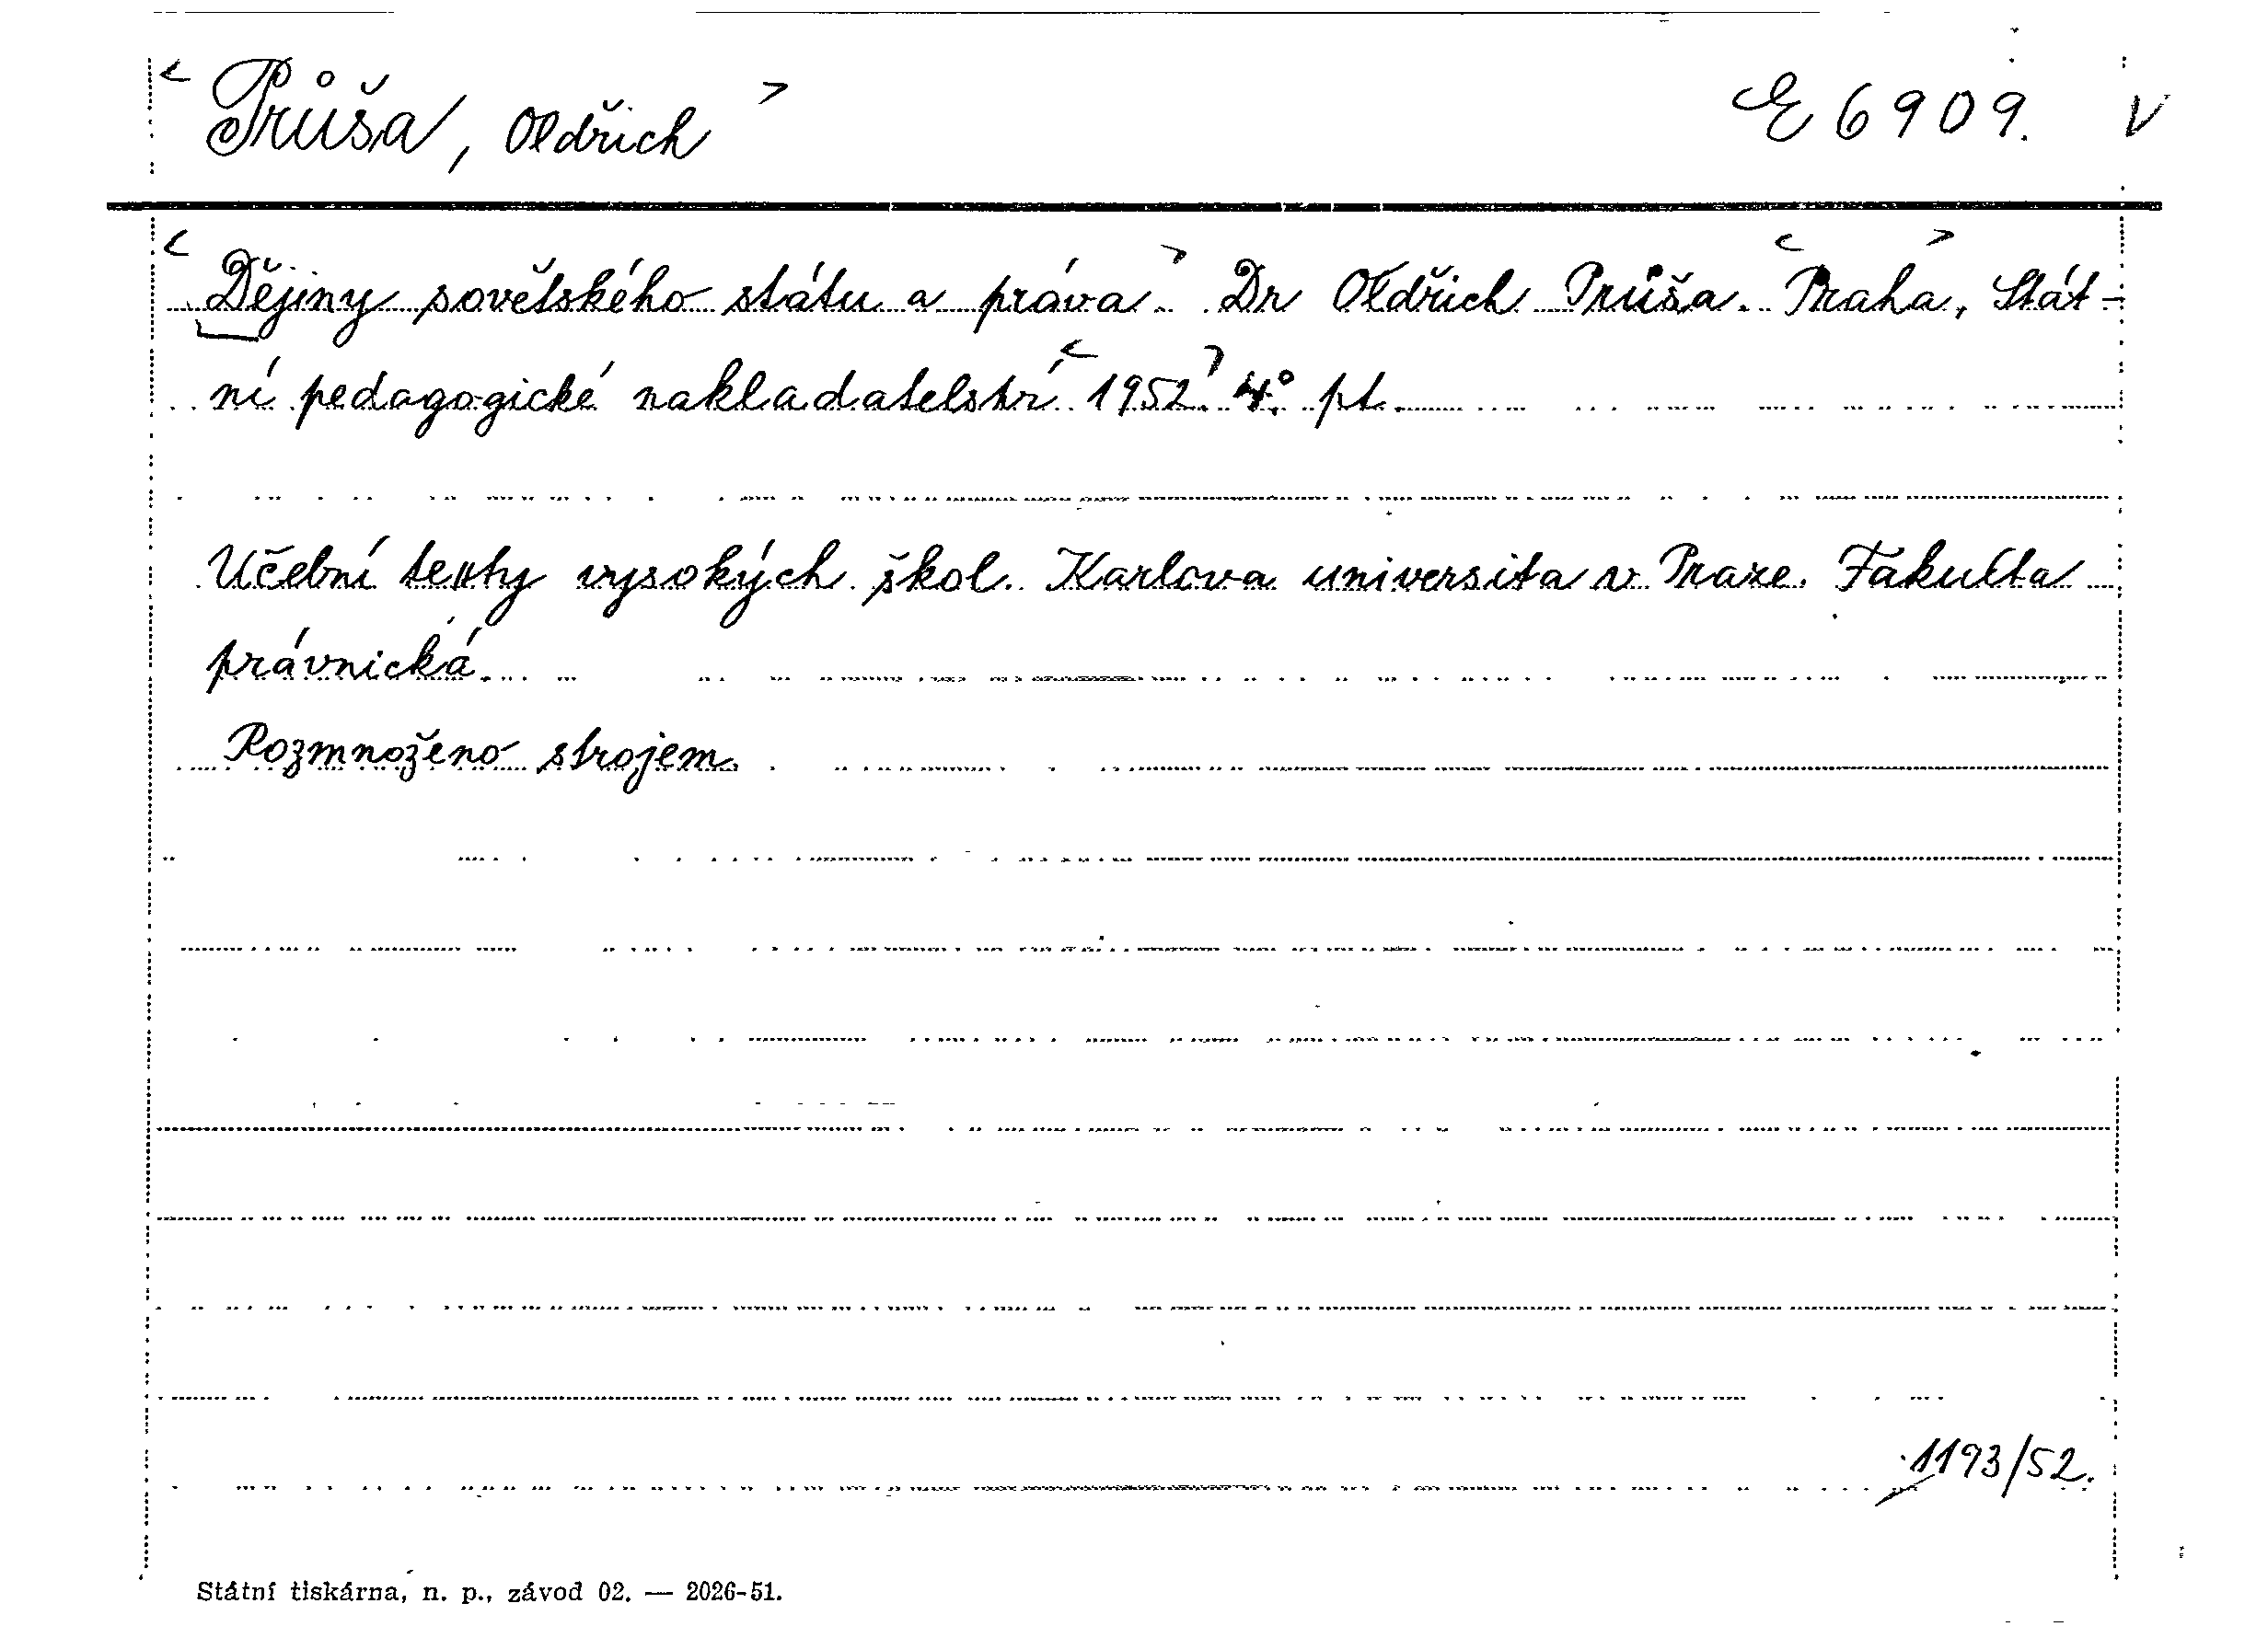 < Průša, Oldřich > E 6909. V
< Dějiny sovětského státu a práva. > Dr Oldřich Průša. < Praha, > Stát-
ní pedagogické nakladatelství < 1952. > 4.° pt.
Učební texty vysokých škol. Karlova universita v Praze. Fakulta
právnická.
Rozmnoženo strojem.
1193/52.
Státní tiskárna, n. p., závod 02. — 2026-51.